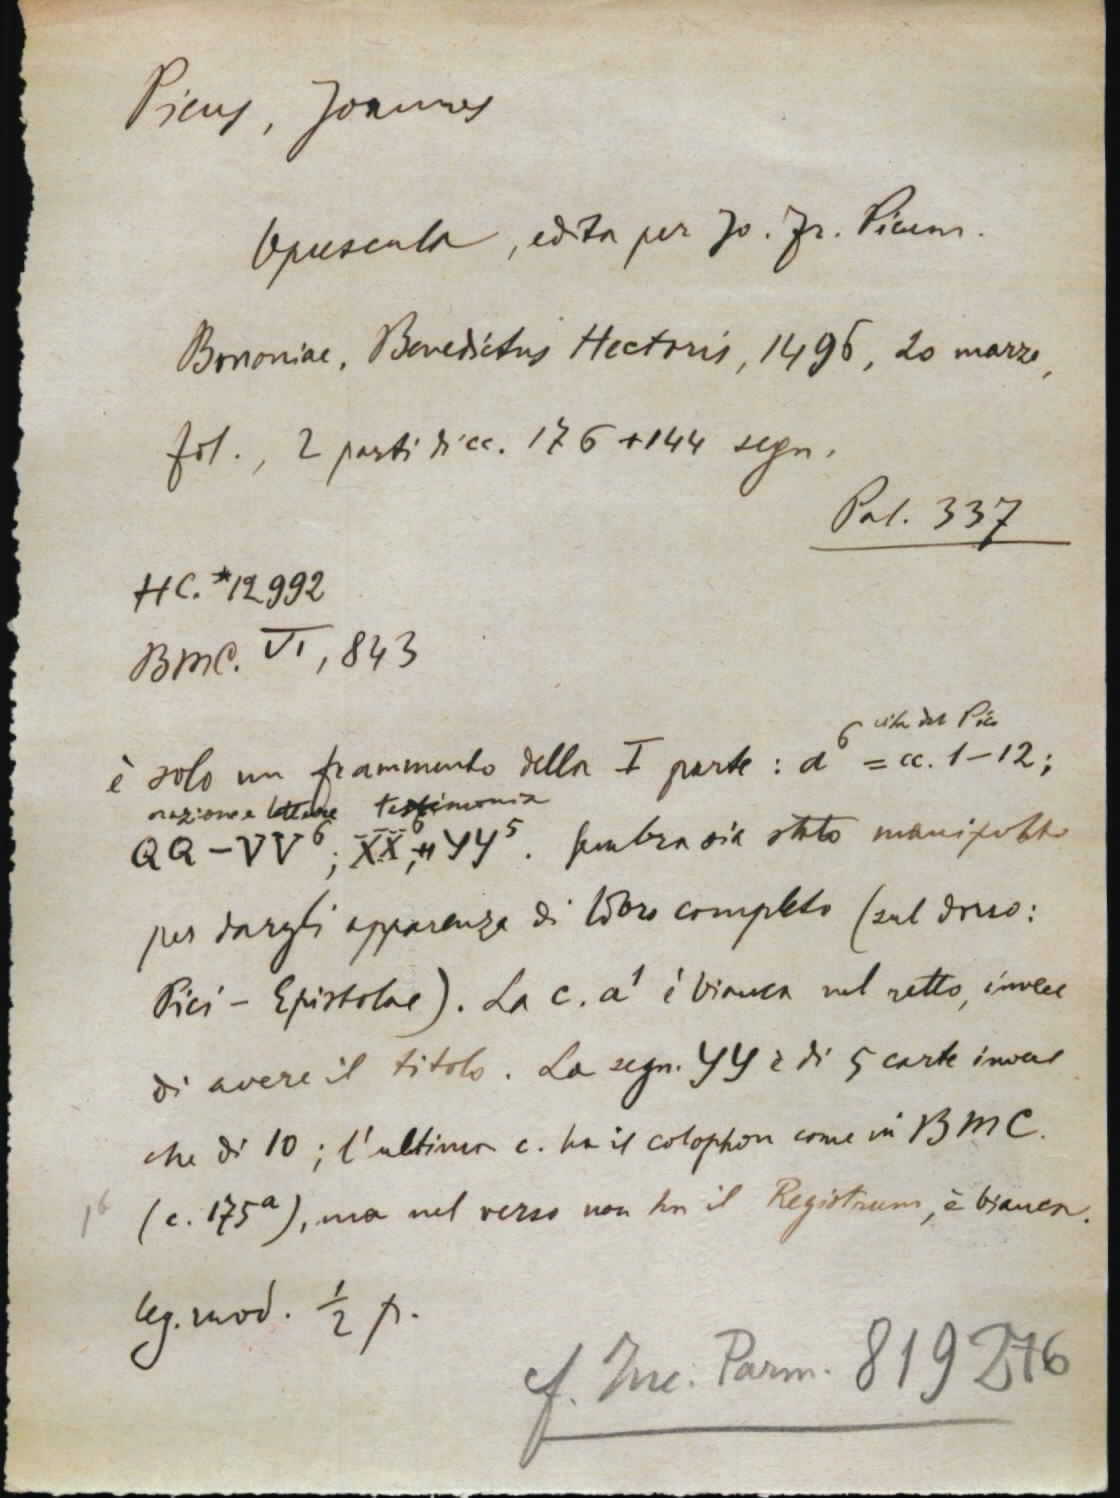 Picus, Joannes
Opuscula, edita per Jo. Fr. Picum.
Bononiae, Benedictus Hectoris, 1496, 20 marzo,
fol., 2 parti di cc. 176 + 144 segn.
Pal. 337
HC. *12992
BMC. VI, 843
vita del Pico
è solo un frammento della I parte : a⁶ = cc. 1-12;
orazione e lettere testimonia
QQ - VV⁶; XX⁶, YY⁵. Sembra sia stato manipolato
per dargli apparenza di libro completo (sul dorso:
Pici - Epistolae). La c. a¹ è bianca nel retto, invece
di avere il titolo. La segn. YY è di 5 carte invece
che di 10; l'ultima c. ha il colophon come in BMC.
(c. 175ᵃ), ma nel verso non ha il Registrum, è bianca.
leg. mod. ½ p.
cf. Inc. Parm. 819 276